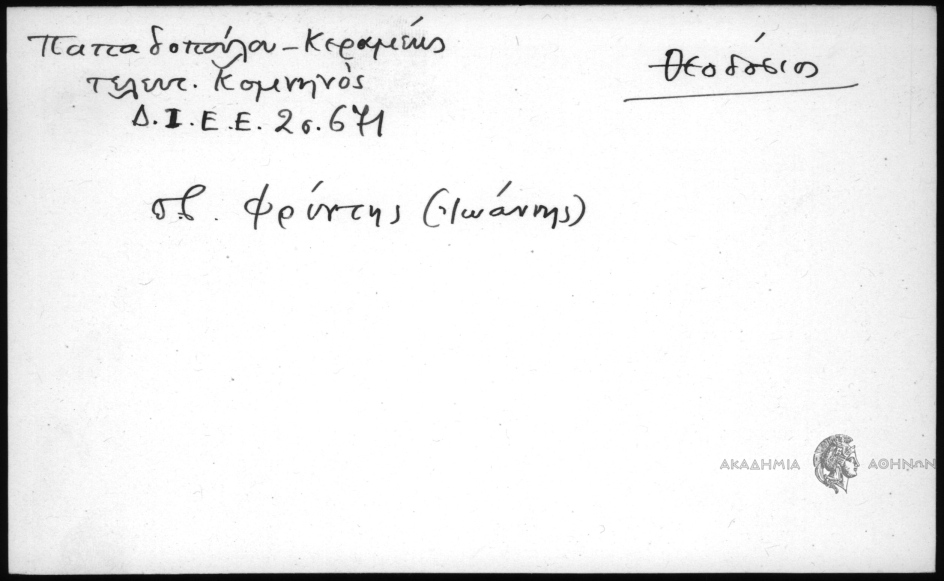 Παπαδοπούλου-Κεραμέως
τελευτ. Κομνηνὸς
Δ.Ι.Ε.Ε. 2 σ. 671
Θεοδόσιος
σβ. Φρύντης (Ἰωάννης)
ΑΚΑΔΗΜΙΑ ΑΘΗΝΩΝ